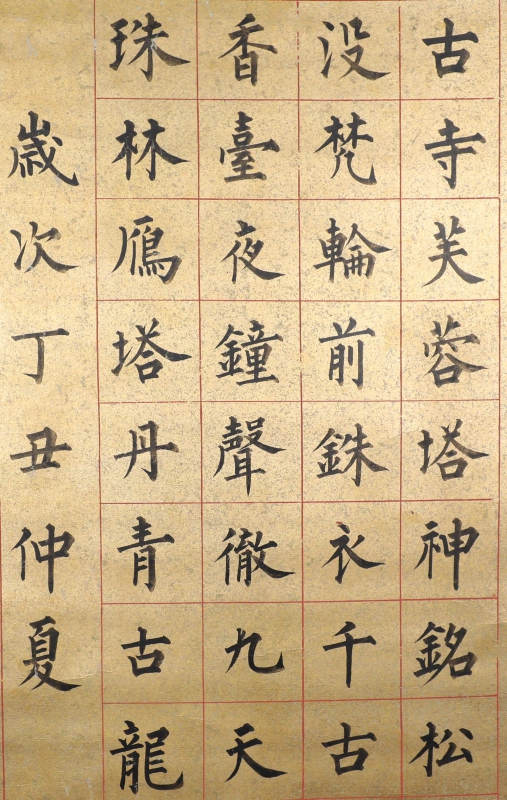 古寺芙蓉塔神銘松
没梵輪前銖衣千古
香臺夜鐘聲徹九天
珠林鴈塔丹青古龍
歲次丁丑仲夏